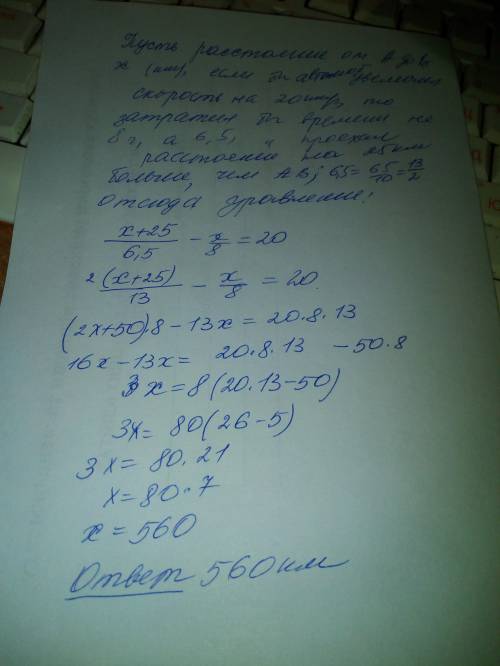 Пусть расстояние от А до В
х (км), если бы автомоб. увеличил
скорость на 20 км/ч, то
затратил бы времени не
8 ч, а 6,5, и проехал
расстояние на 25 км
больше, чем АВ; 6,5 = 65/10 = 13/2
Отсюда уравнение:
(x+25)/6,5 − x/8 = 20
2(x+25)/13 − x/8 = 20
(2x+50)·8 − 13x = 20·8·13
16x − 13x = 20·8·13 − 50·8
3x = 8(20·13 − 50)
3x = 80(26 − 5)
3x = 80·21
x = 80·7
x = 560
Ответ 560 км